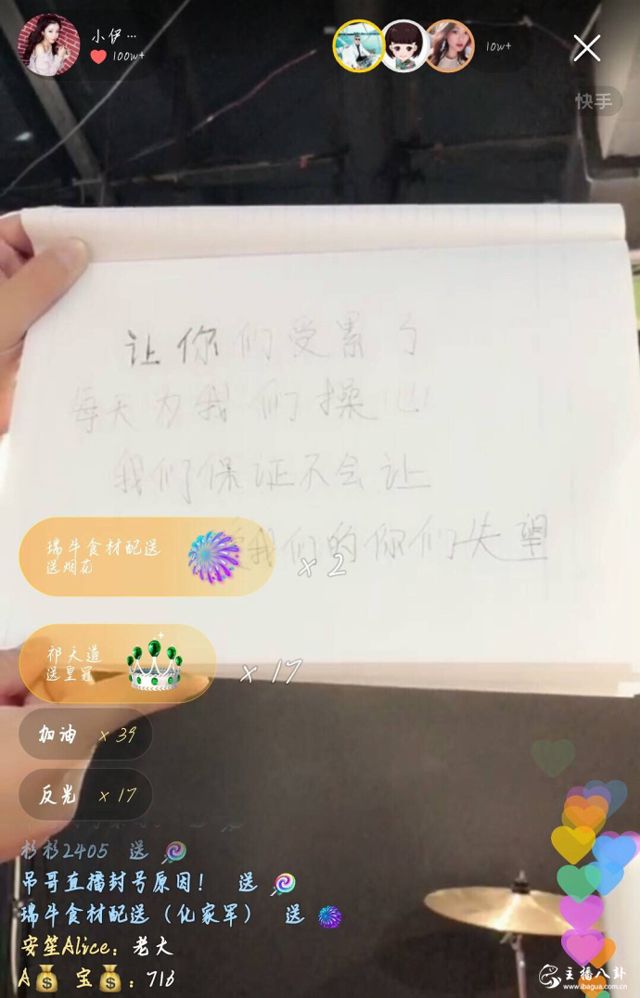 小伊…
100w+
10w+
快手
让你们受累了
每天为我们操心
我们保证不会让
爱我们的你们失望
瑞牛食材配送
送烟花
x 2
祁天道
送皇冠
x 17
加油 x 39
反光 x 17
杉杉2405 送
吊哥直播封号原因! 送
瑞牛食材配送(化家军) 送
安笙Alice:老大
A 宝 :716
主播八卦
www.ibagua.com.cn